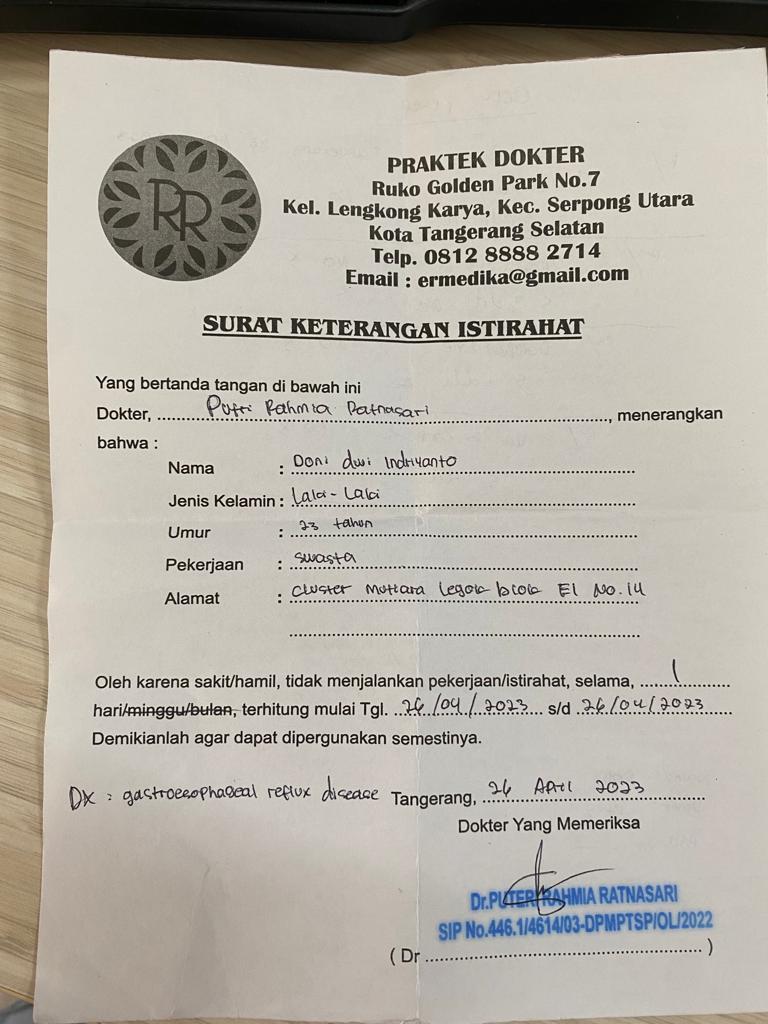 RR
PRAKTEK DOKTER
Ruko Golden Park No.7
Kel. Lengkong Karya, Kec. Serpong Utara
Kota Tangerang Selatan
Telp. 0812 8888 2714
Email : ermedika@gmail.com
SURAT KETERANGAN ISTIRAHAT
Yang bertanda tangan di bawah ini
Dokter, Putri Rahmia Ratnasari, menerangkan
bahwa :
Nama : Doni dwi Indriyanto
Jenis Kelamin : Laki-Laki
Umur : 23 tahun
Pekerjaan : Swasta
Alamat : Cluster Mutiara Legok blok E1 No.14
Oleh karena sakit/hamil, tidak menjalankan pekerjaan/istirahat, selama, 1
hari/minggu/bulan, terhitung mulai Tgl. 26/04/2023 s/d 26/04/2023
Demikianlah agar dapat dipergunakan semestinya.
DX : gastroesophageal reflux disease Tangerang, 26 April 2023
Dokter Yang Memeriksa
Dr.PUTERI RAHMIA RATNASARI
SIP No.446.1/4614/03-DPMPTSP/OL/2022
( Dr )